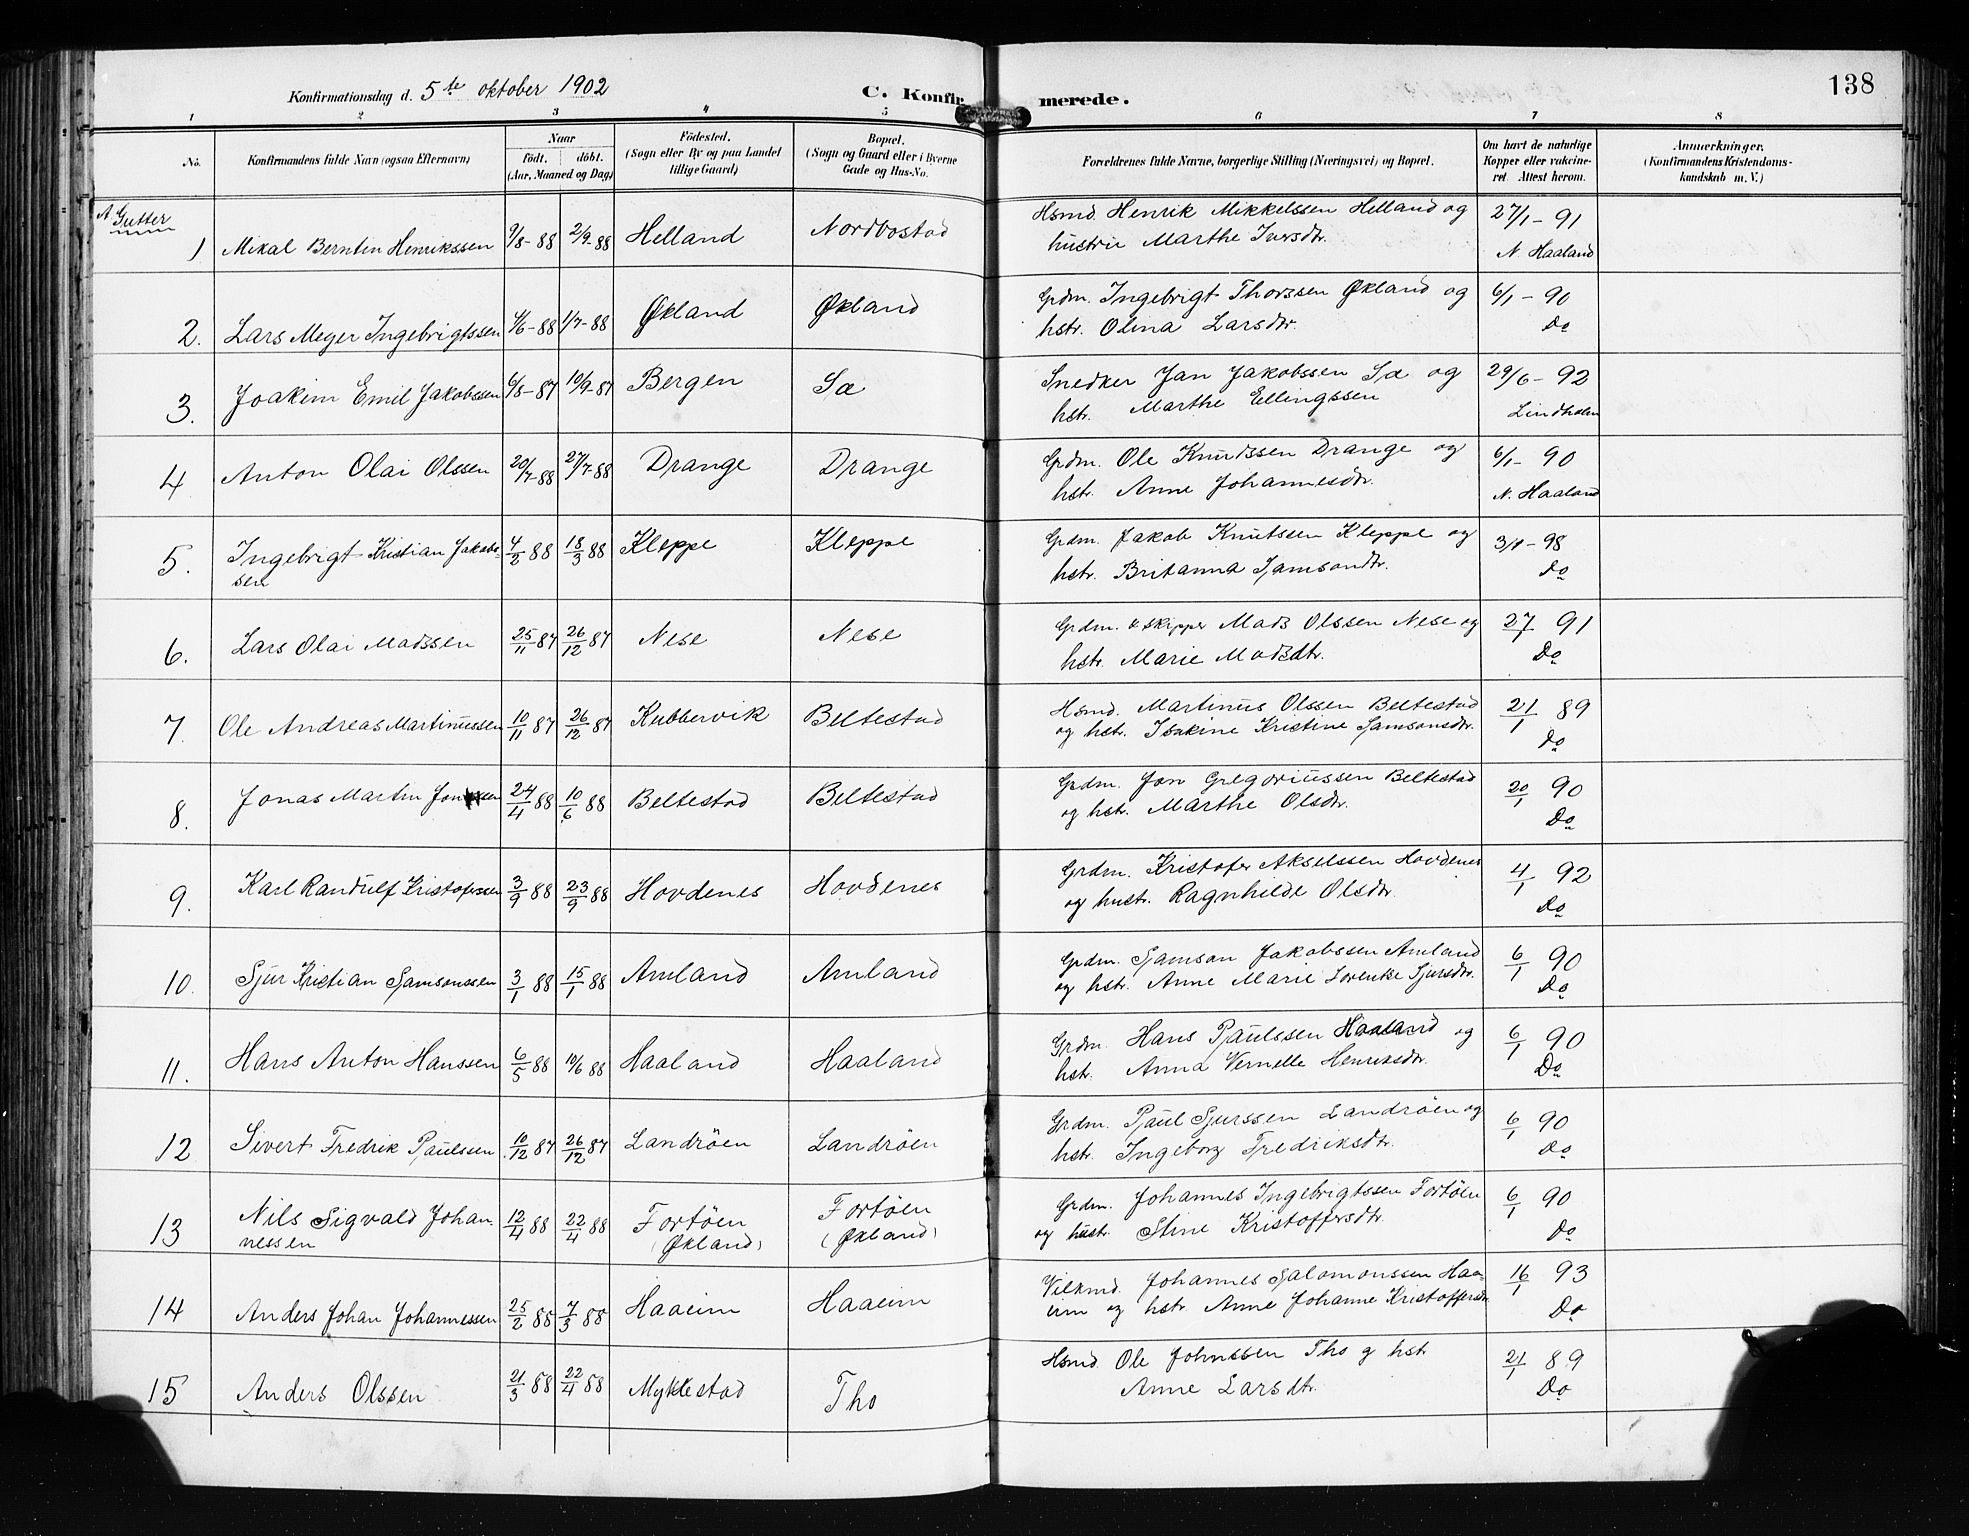 Konfirmationsdag d. 5te oktober 1902
C. Konfir merede.
138
1 2 3 4 5 6 7 8
No.
Konfirmandens fulde Navn (ogsaa Efternavn)
Naar
födt. döbt.
(Aar, Maaned og Dag)
Födested.
(Sogn eller By og paa Landet
tillige Gaard)
Bopæl.
(Sogn og Gaard eller i Byerne
Gade og Hus-No.
Forældrenes fulde Navne, borgerlige Stilling (Næringsvei) og Bopæl.
Om havt de naturlige
Kopper eller vakcine-
ret. Attest herom.
Anmerkninger.
(Konfirmandens Kristendoms-
kundskab m. V.)
A. Gutter
1 Mikal Berntin Henrikssen 9/8-88 2/9-88 Helland Nordbostad Hsmd. Henrik Mikkelssen Helland og 27/1-91
hustru Marthe Iversdtr. N. Haaland
2. Lars Meyer Ingebrigtssen 4/6-88 1/7-88 Økland Økland Grdm. Ingebrigt Thorssen Økland og 6/1-90
hstr. Olina Larsdtr. Do
3. Joakim Emil Jakobssen 6/8-87 10/9-87 Bergen Sæ Snedker Jan Jakobssen Sæ og 29/6-92
hstr. Marthe Ellingssen Lindholm
4 Anton Olai Olssen 20/7-88 27/7-88 Drange Drange Grdm. Ole Knudssen Drange og 6/1-90
hstr. Anne Johannesdtr. N. Haaland
5. Ingebrigt Kristian Jakobs- 4/2 88 18/3 88 Kleppe Kleppe Grdm. Jakob Knutssen Kleppe og 3/1-98
sen hstr. Britanna Samsondtr. Do
6. Lars Olai Madssen 25/11 87 26/12 87 Nese Nese Grdm. & skipper Mads Olssen Nese og 27/1 91
hstr. Marie Madsdtr. Do
7. Ole Andreas Martinussen 10/11 87 26/12 87 Kubbervik Beltestad Hsmd. Martinus Olssen Beltestad 21/1 89
og hstr. Isakine Kristine Samsonsdtr. Do
8. Jonas Martin 24/4 88 10/6 88 Beltestad Beltestad Grdm. Jon Gregoriussen Beltestad 20/1 90
og hstr. Marthe Olsdtr. Do
9. Karl Randulf Kristofersen 3/9 88 23/9 88 Hovdenes Hovdenes Grdm. Kristofer Akselssen Hovdenes 4/1 92
og hustr. Ragnhilde Olsdtr. Do
10. Sjur Kristian Samsonssen 3/1 88 15/1 88 Amland Amland Grdm. Samson Jakobssen Amland 6/1 90
og hstr. Anne Marie Lorentse Sjursdtr. Do
11. Hans Anton Hanssen 6/5 88 10/6 88 Haaland Haaland Grdm. Hans Paulssen Haaland og 6/1 90
hstr. Anna Vernelle Henriksdtr. Do
12 Sivert Fredrik Paulssen 10/12 87 26/12 87 Landröen Landröen Grdm. Paul Sjurssen Landröen og 6/1 90
hstr. Ingeborg Fredriksdtr. Do
13 Nils Sigvald Johan- 12/4 88 22/4 88 Fortöen Fortöen Grdm. Johannes Ingebrigtssen Fortöen 6/1 90
nessen (Økland) (Økland) og hustr. Stine Kristoffersdtr. Do
14 Anders Johan Johannessen 25/2 88 7/3 88 Haaeim Haaeim Johannes Salomonssen Haa- 16/1 93
eim og hstr. Anne Johanne Kristoffersdtr. Do
15 Anders Olssen 21/3 88 22/4 88 Myklestad Tho Hsmd Ole Johnssen Tho g hst 21/1 89
Anne Larsdtr. Do